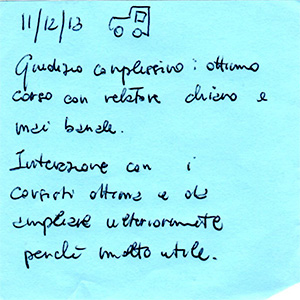 11/12/13
Giudizio complessivo: ottimo
corso con relatore chiaro e
mai banale.
Interazione con i
corsisti ottima e da
ampliare ulteriormente
perché molto utile.